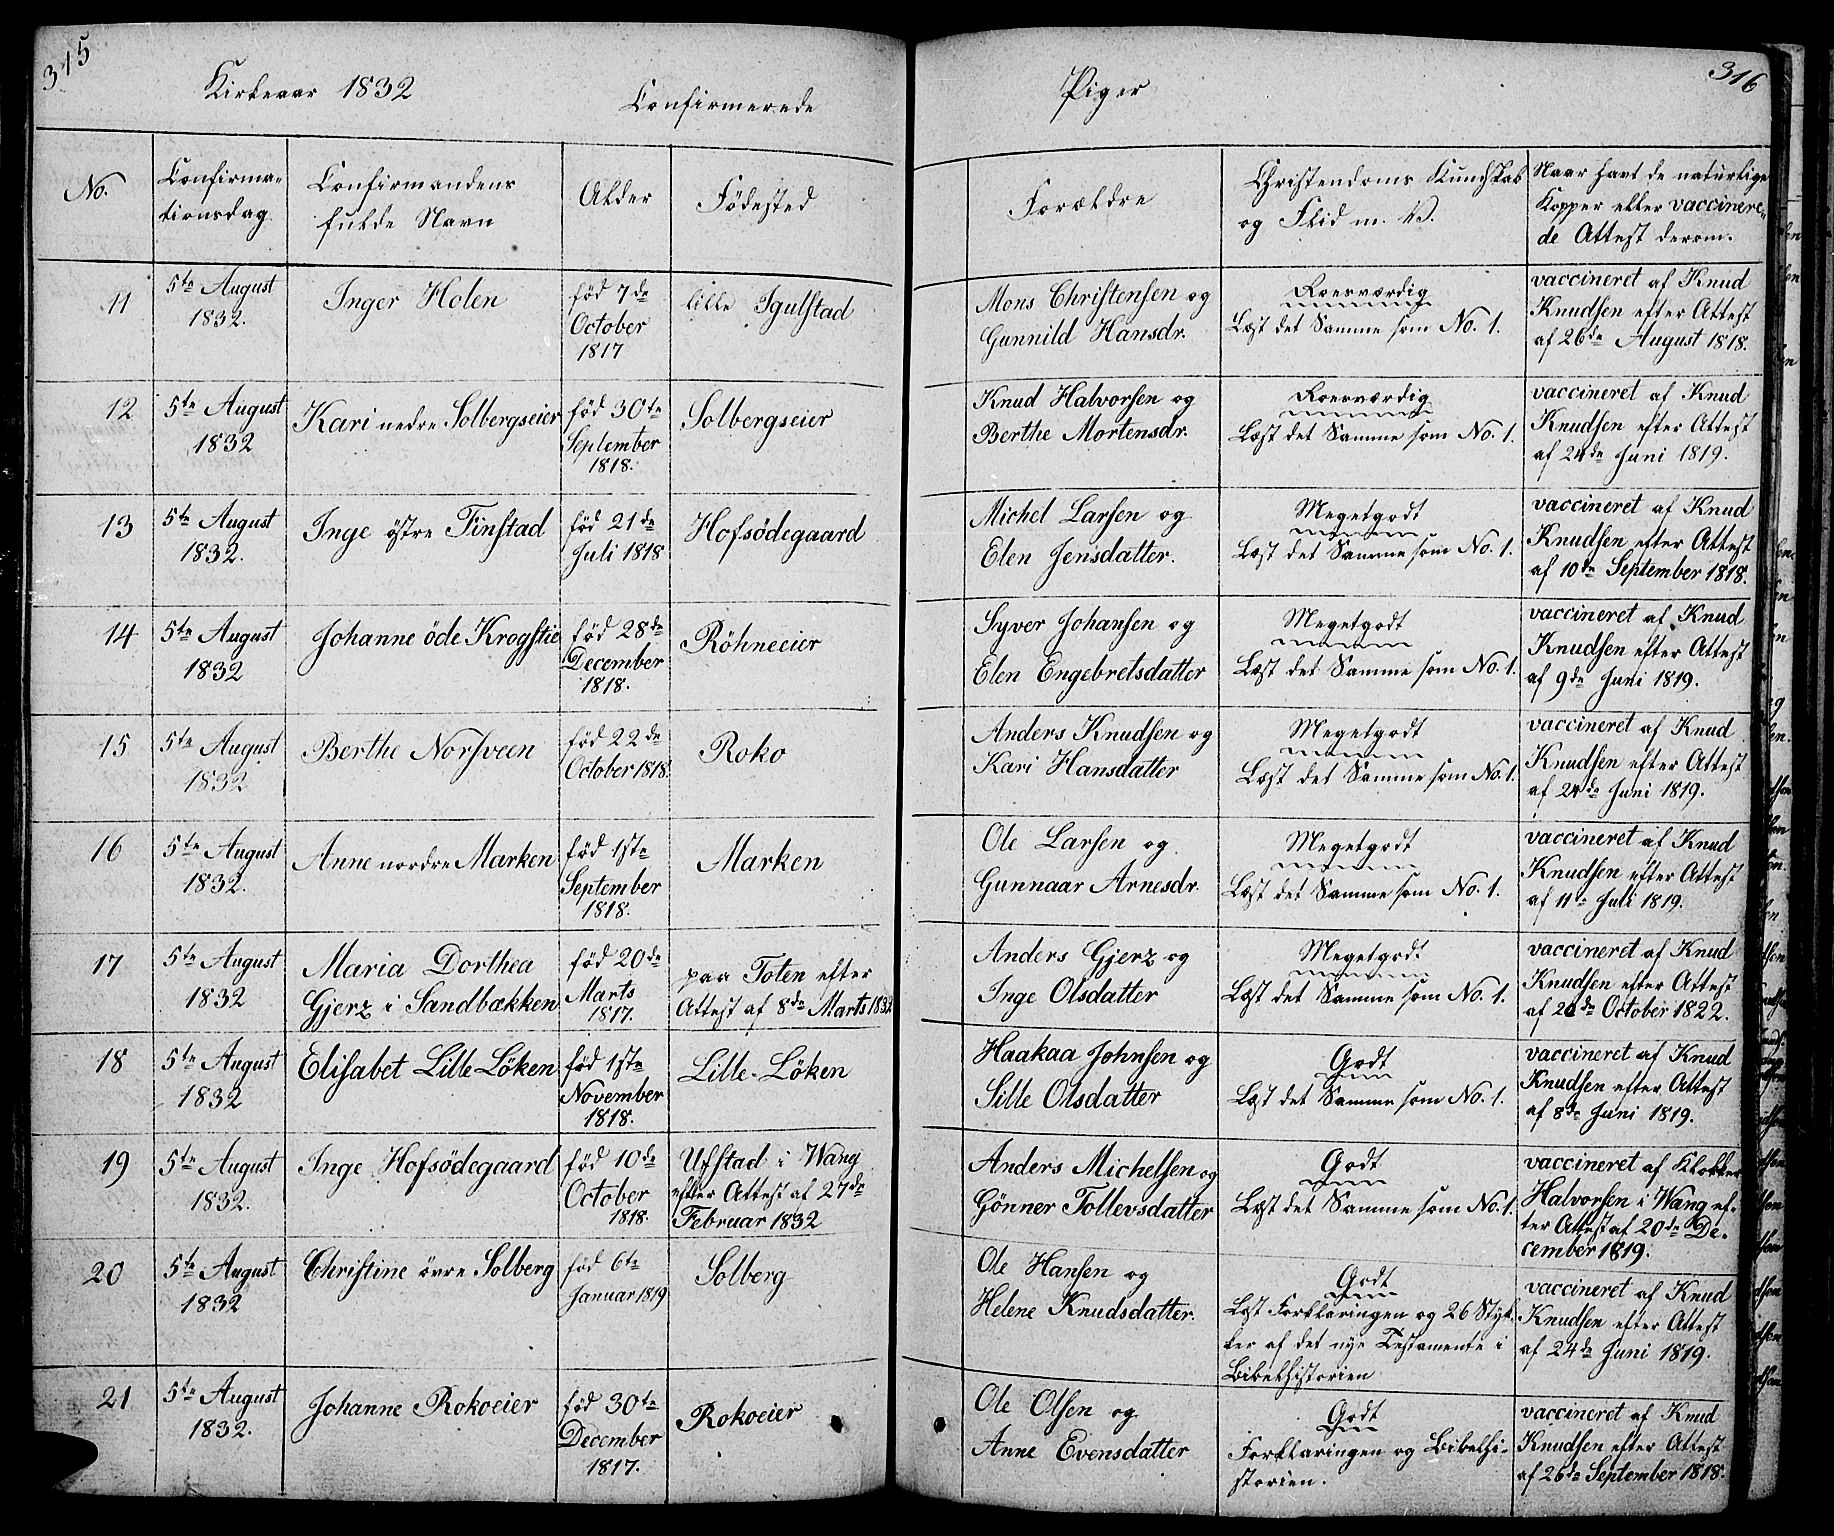 315
Kirkeaar 1832
Confirmerede
Piger
316
No.
Confirma-
tionsdag
Confirmandens
fulde Navn
Alder
Födested
Forældre
Christendoms Kundskab
og Flid m. V.
Naar havt de naturlige
Kopper eller vaccinere-
de Attest derom.
11
5te August
1832.
Inger Holen
föd 7de
October
1817
lille Igulstad
Mons Christensen og
Gunnild Hansdr.
Roesværdig
Læst det Samme som No. 1.
vaccineret af Knud
Knudsen efter Attest
af 26de August 1818.
12
5te August
1832
Kari nedre Solbergseier
föd 30te
September
1818.
Solbergseier
Knud Halvorsen og
Berthe Mortensdr.
Roesværdig
Læst det Samme som No. 1.
vaccineret af Knud
Knudsen efter Attest
af 24de Juni 1819.
13
5te August
1832.
Inge östre Finstad
föd 21de
Juli 1818
Hofsödegaard
Michel Larsen og
Elen Jensdatter.
Megetgodt
Læst det Samme som No. 1.
vaccineret af Knud
Knudsen efter Attest
af 10de September 1818.
14
5te August
1832
Johanne öde Krogstie
föd 28de
December
1818.
Röhneeier
Syver Johansen og
Elen Engebretsdatter
Megetgodt
Læst det Samme som No. 1.
vaccineret af Knud
Knudsen efter Attest
af 9de Juni 1819.
15
5te August
1832
Berthe Norsveen
föd 22de
October 1818.
Roko
Anders Knudsen og
Kari Hansdatter
Megetgodt
Læst det Samme som No. 1.
vaccineret af Knud
Knudsen efter Attest
af 24de Juni 1819.
16
5te August
1832.
Anne nordre Marken
föd 1ste
September
1818.
Marken
Ole Larsen og
Gunnaar Arnesdr.
Megetgodt
Læst det Samme som No. 1.
vaccineret af Knud
Knudsen efter Attest
af 11te Juli 1819.
17
5te August
1832
Maria Dorthea
Gjerz i Sandbækken
föd 20de
Marts
1817.
paa Toten efter
Attest af 8de Marts 1832
Anders Gjerz og
Inge Olsdatter
Megetgodt
Læst det Samme som No. 1.
vaccineret af Knud
Knudsen efter Attest
af October 1822.
18
5te August
1832
Elisabet Lille Löken
föd 1ste
November
1818.
Lille-Löken
Haakaa Johnsen og
Sille Olsdatter
Godt
Læst det Samme som No. 1.
vaccineret af Knud
Knudsen efter Attest
af 8de Juni 1819.
19
5te August
1832.
Inge Hofsödegaard
föd 10de
October
1818.
Ufstad i Wang
efter Attest af 27de
Februar 1832
Anders Michelsen og
Gönner Tollevsdatter
Godt
Læst det Samme som No. 1.
vaccineret af Klokker
Halvorsen i Wang ef-
ter Attest af 20de De-
cember 1819.
20
5te August
1832
Christine övre Solberg
föd 6te
Januar 1819
Solberg
Ole Hansen og
Helene Knudsdatter.
Godt
Læst Forklaringen og 26 Styk-
ker af det nye Testamente i
Bibelhistorien
vaccineret af Knud
Knudsen efter Attest
af 24de Juni 1819.
21
5te August
1832.
Johanne Rokoeier
föd 30te
December
1817.
Rokoeier
Ole Olsen og
Anne Evensdatter
Godt
Forklaringen og Bibelhi-
storien.
vaccineret af Knud
Knudsen efter Attest
af 26de September 1818.